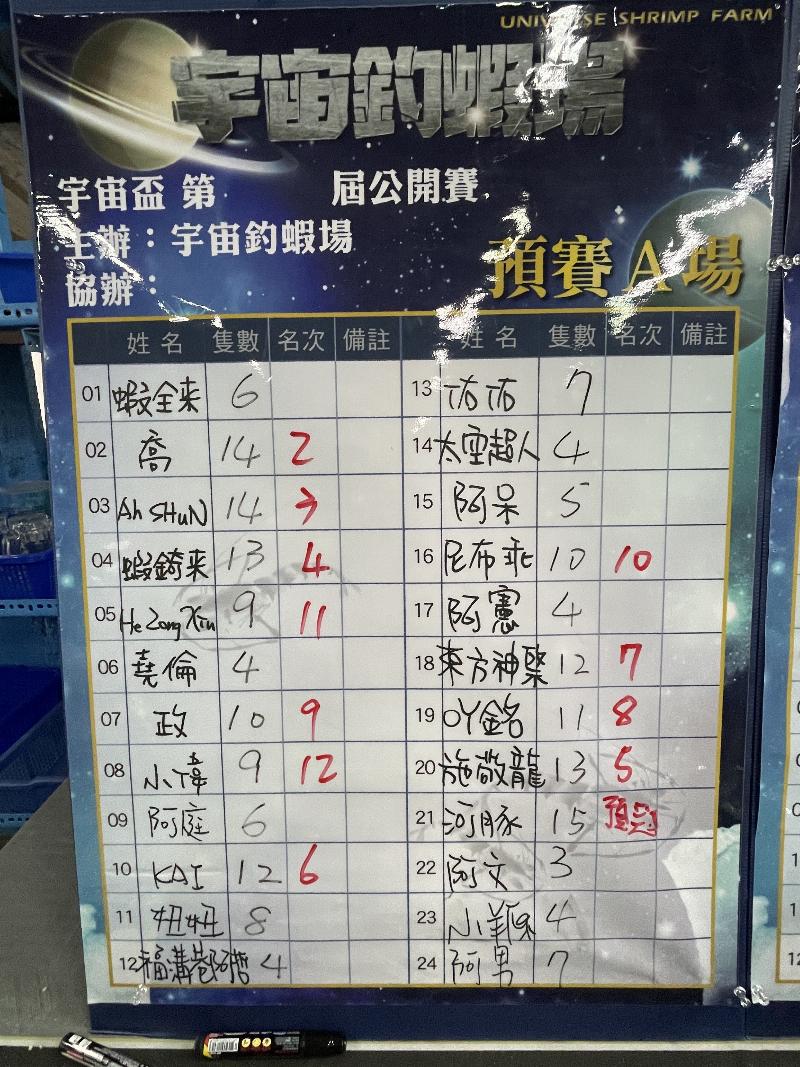 UNIVERSE SHRIMP FARM
宇宙釣蝦場
宇宙盃 第 屆公開賽
主辦：宇宙釣蝦場
協辦：
預賽 A 場
姓名 隻數 名次 備註 姓名 隻數 名次 備註
01 蝦全來 6 13 祐祐 7
02 喬 14 2 14 太空超人 4
03 Ah SHUN 14 3 15 阿呆 5
04 蝦錡來 13 4 16 尼布乖 10 10
05 He Zong Xin 9 11 17 阿憲 4
06 堯倫 4 18 東方神 12 7
07 政 10 9 19 吖銘 11 8
08 小偉 9 12 20 施敬龍 13 5
09 阿庭 6 21 河豚 15 預冠
10 KAI 12 6 22 阿文 3
11 妞妞 8 23 小 4
12 福溝巷阿哲 4 24 阿男 7